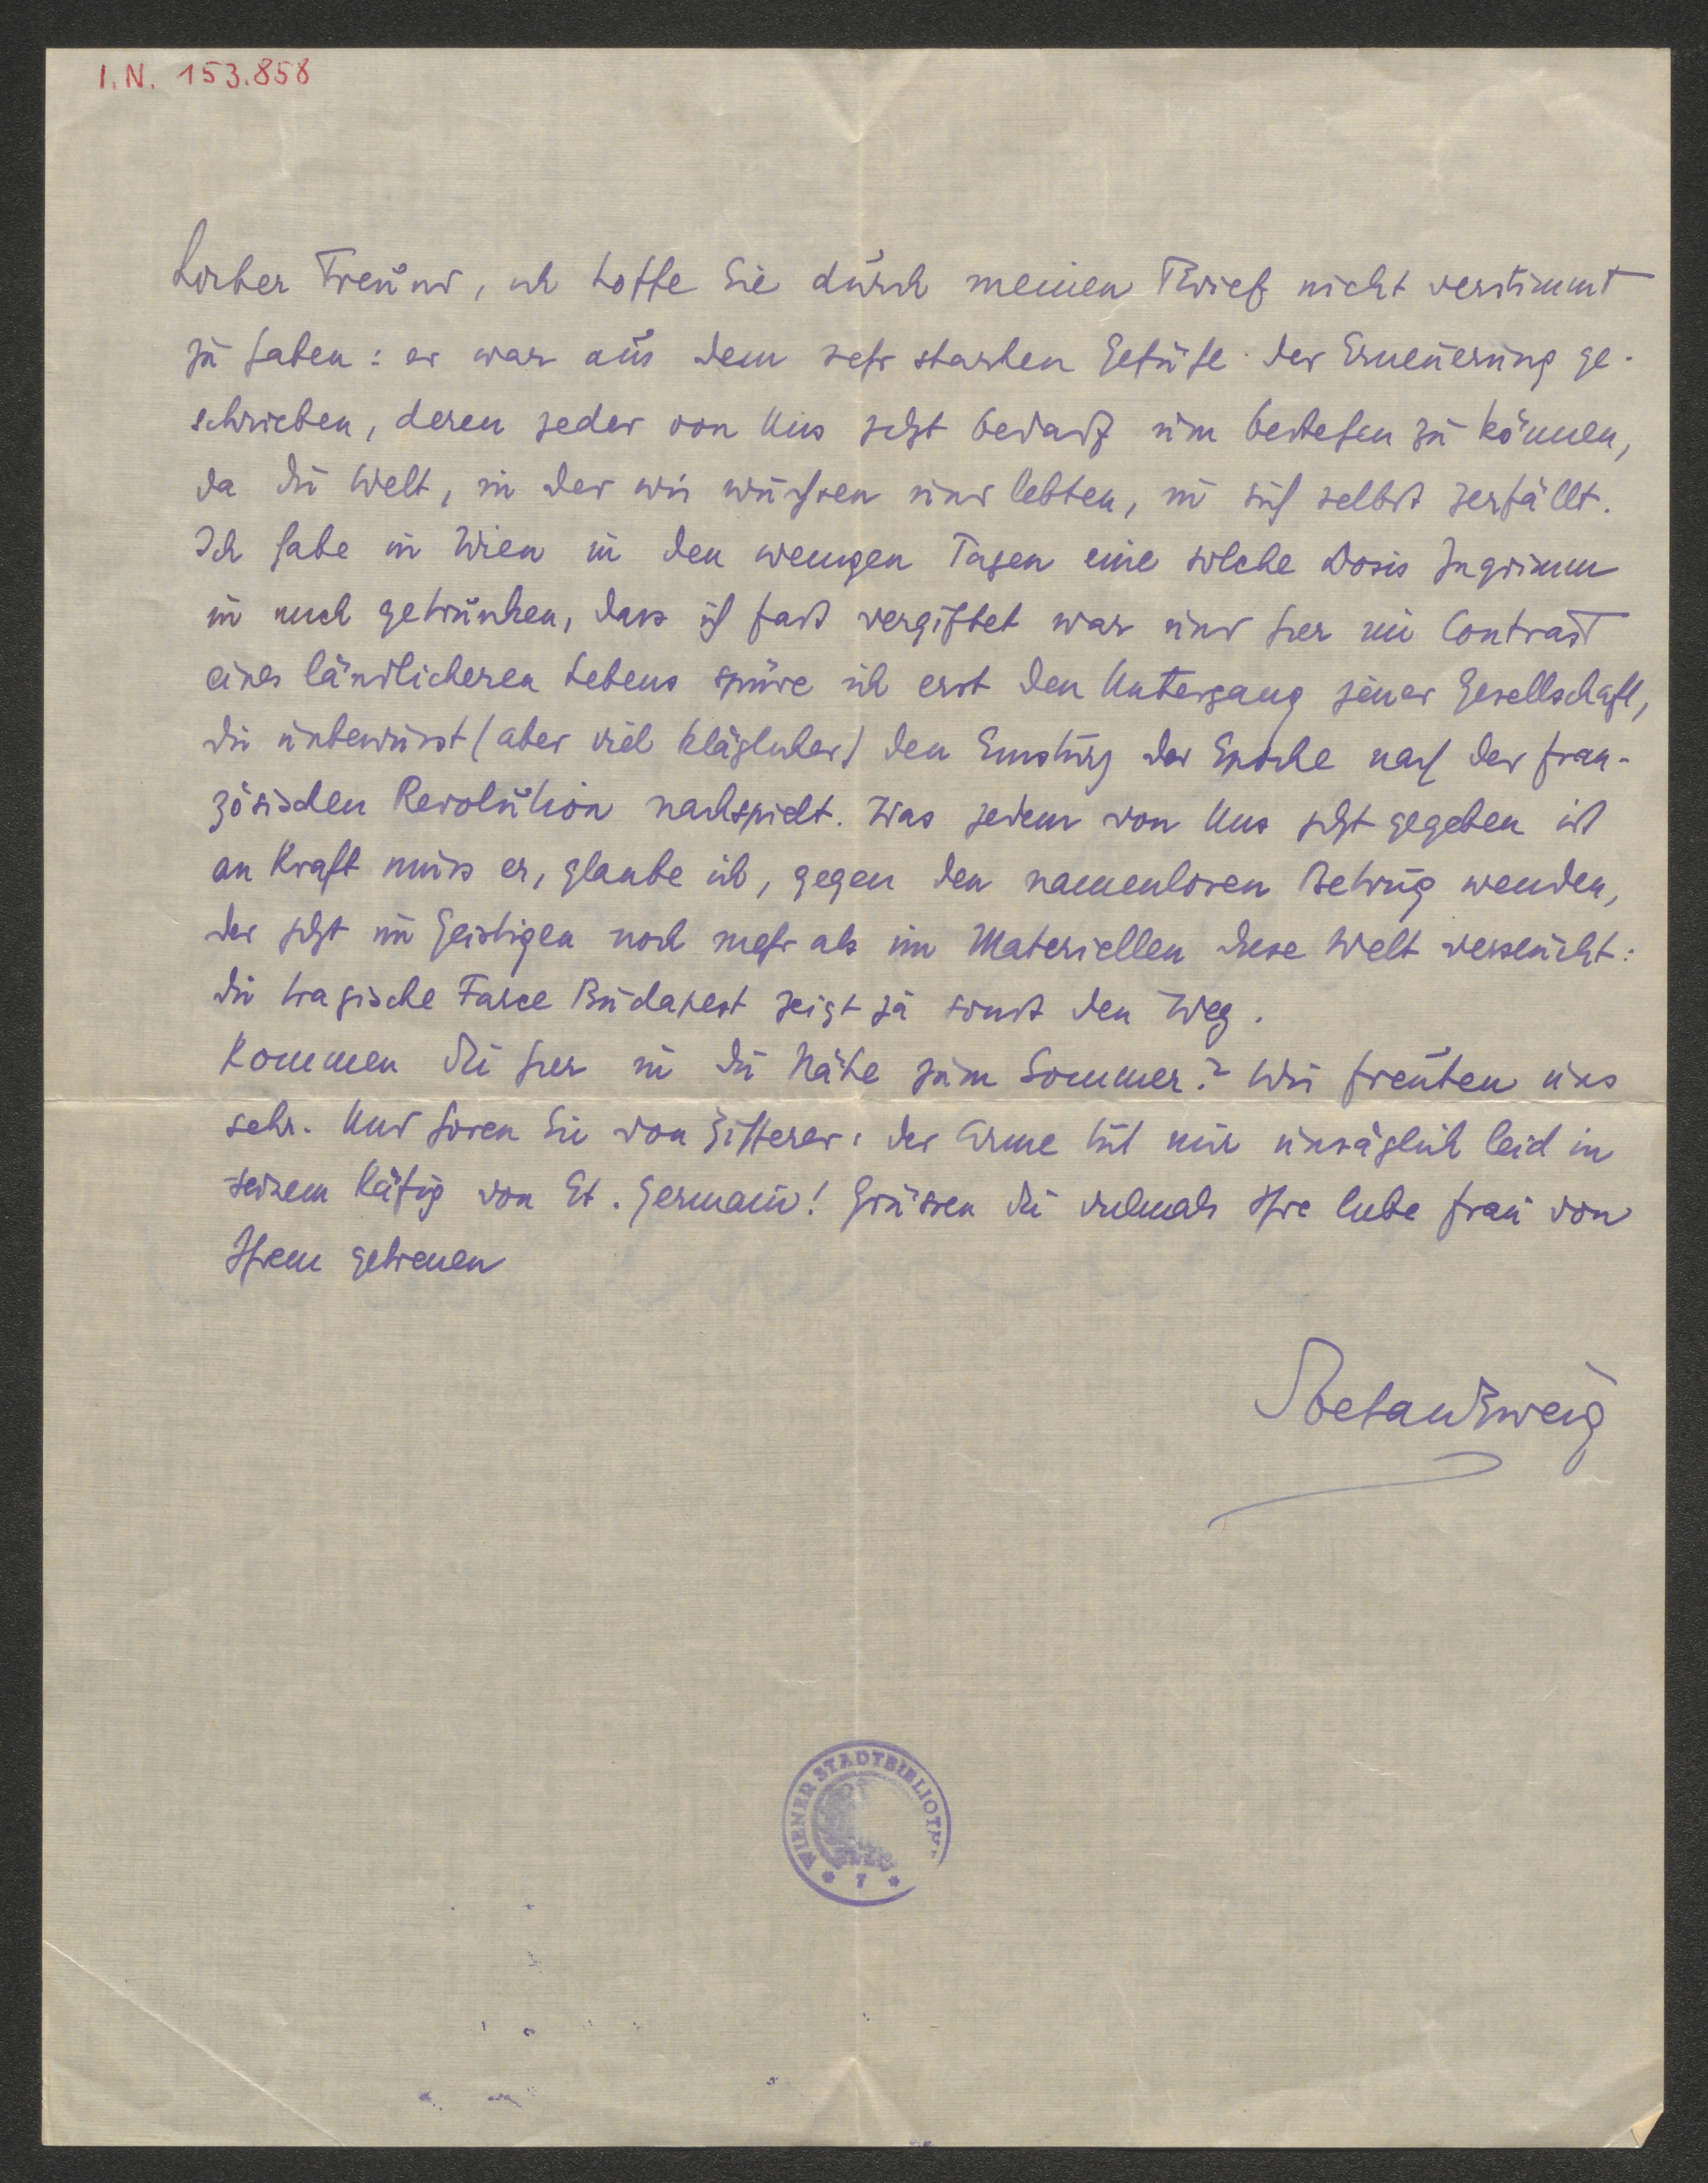 I.N. 153.858
Lieber Freund, ich hoffe Sie durch meinen Brief nicht verstimmt
zu haben: er war aus dem sehr starken Gefühl der Erneuerung ge-
schrieben, deren jeder von Uns jetzt bedarf um bestehen zu können,
da die Welt, in der wir wuchsen und lebten, in sich selbst zerfällt.
Ich habe in Wien in den wenigen Tagen eine solche Dosis Ingrimm
in mich getrunken, dass ich fast vergiftet war und hier im Contrast
eines ländlicheren Lebens spüre ich erst den Untergang jener Gesellschaft,
die unbewusst (aber viel kläglicher) den Einsturz der Epoche nach der fran-
zösischen Revolution nachspielt. Was jedem von Uns jetzt gegeben ist
an Kraft muss er, glaube ich, gegen den namenlosen Betrug wenden,
der jetzt im Geistigen noch mehr als im Materiellen diese Welt verseucht:
die tragische Farce Budapest zeigt ja sonst den Weg.
Kommen Sie hier in die Nähe zum Sommer? Wir freuten uns
sehr. Und hören Sie von Zifferer: der Arme tut mir unsäglich leid in
seinem Käfig von St. Germain! Grüssen Sie vielmals Ihre liebe Frau von
Ihrem getreuen
Stefan Zweig
WIENER STADTBIBLIOTH
* 7 *